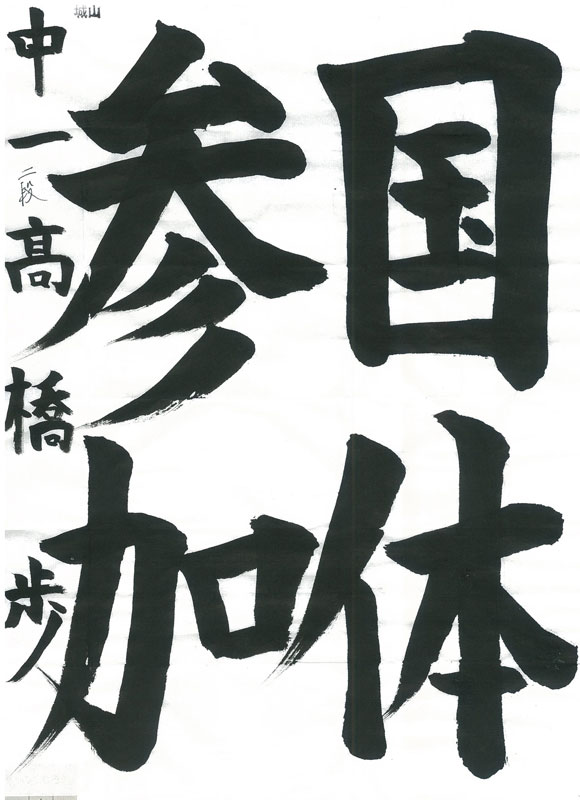 国体
参加
城山
中一 二段 髙橋歩